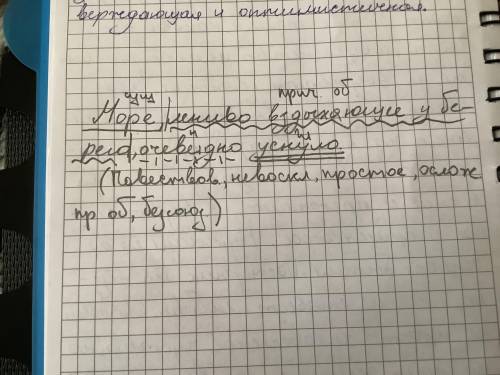 верждающая и оптимистичная.
сущ прич. об
Море, лениво вздыхающее у бе-
рега, очевидно уснуло.
(Повествов, невоскл, простое, ослож
пр об, безсоюз)